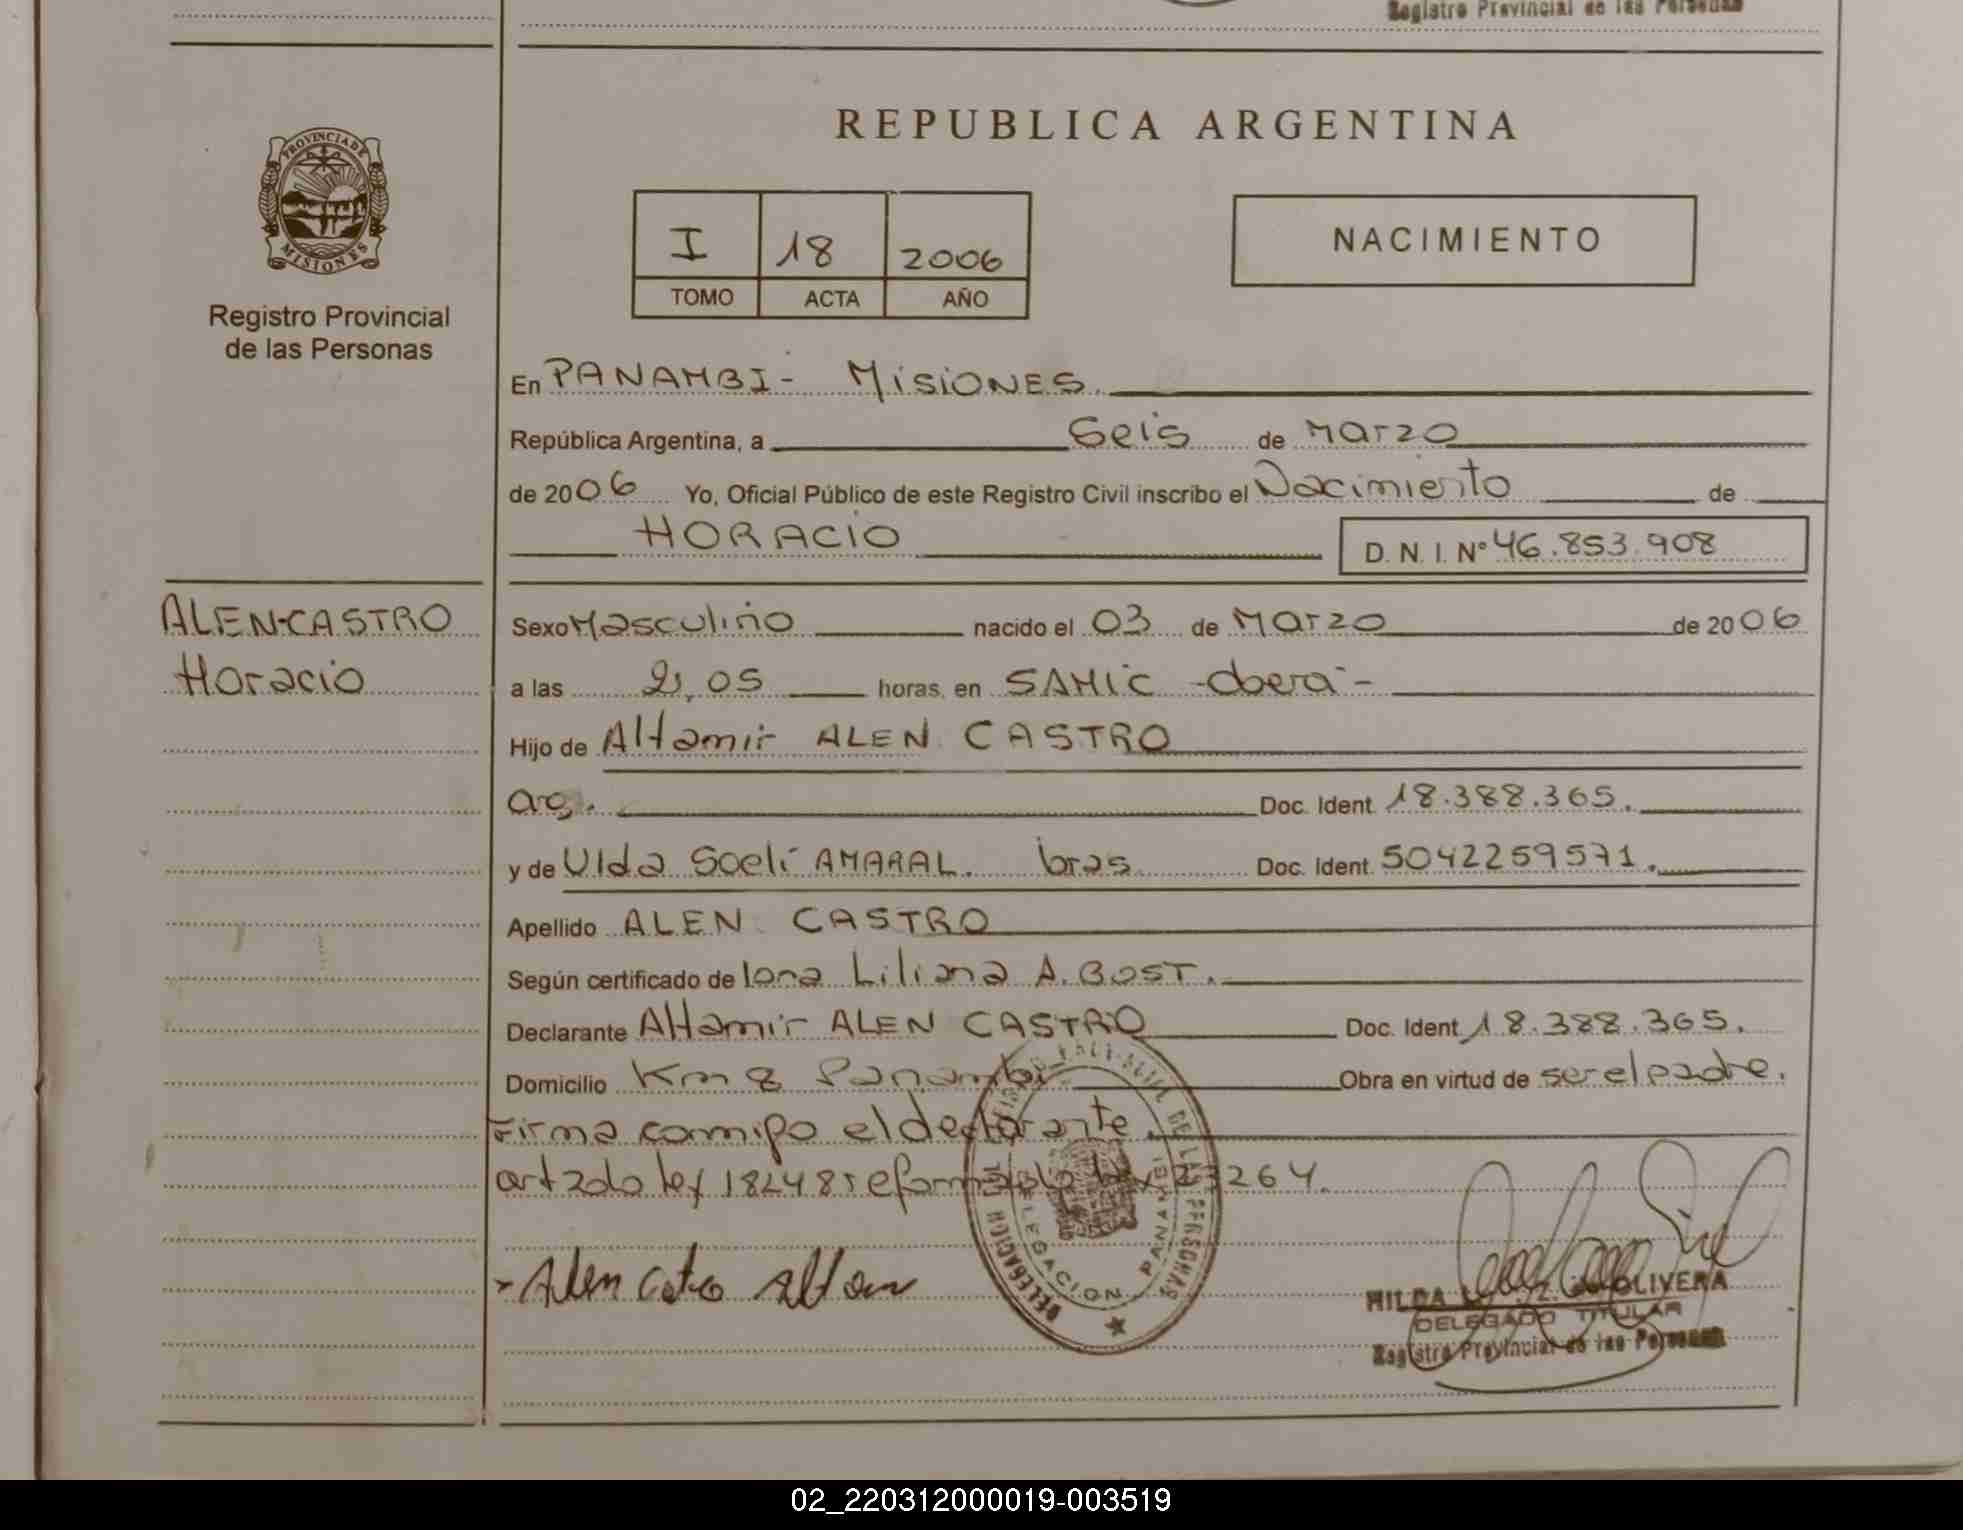 Registro Provincial de las Personas
REPUBLICA ARGENTINA
PROVINCIA DE
MISIONES
Registro Provincial
de las Personas
I 18 2006
TOMO ACTA AÑO
NACIMIENTO
En PANAMBI - MISIONES.
República Argentina, a Seis de Marzo
de 2006 Yo, Oficial Público de este Registro Civil inscribo el Nacimiento de
HORACIO D. N. I. Nº 46.853.908
ALEN CASTRO
Horacio
Sexo Masculino nacido el 03 de Marzo de 2006
a las 21,05 horas, en SAMIC - obera -
Hijo de Altamir ALEN CASTRO
arg. Doc. Ident. 18.388.365.
y de Ulda Soeli AMARAL. bras. Doc. Ident. 5042259571.
Apellido ALEN CASTRO
Según certificado de Liliana A. BOST.
Declarante Altamir ALEN CASTRO Doc. Ident. 18.388.365.
Domicilio Km 8 Panambi Obra en virtud de ser el padre.
Firma conmigo el declarante.
ley 18248 reformado ley 23264.
Alen
DELEGACION PANAMBI
HILDA OLIVERA
DELEGADO TITULAR
Registro Provincial de las Personas
02_220312000019-003519